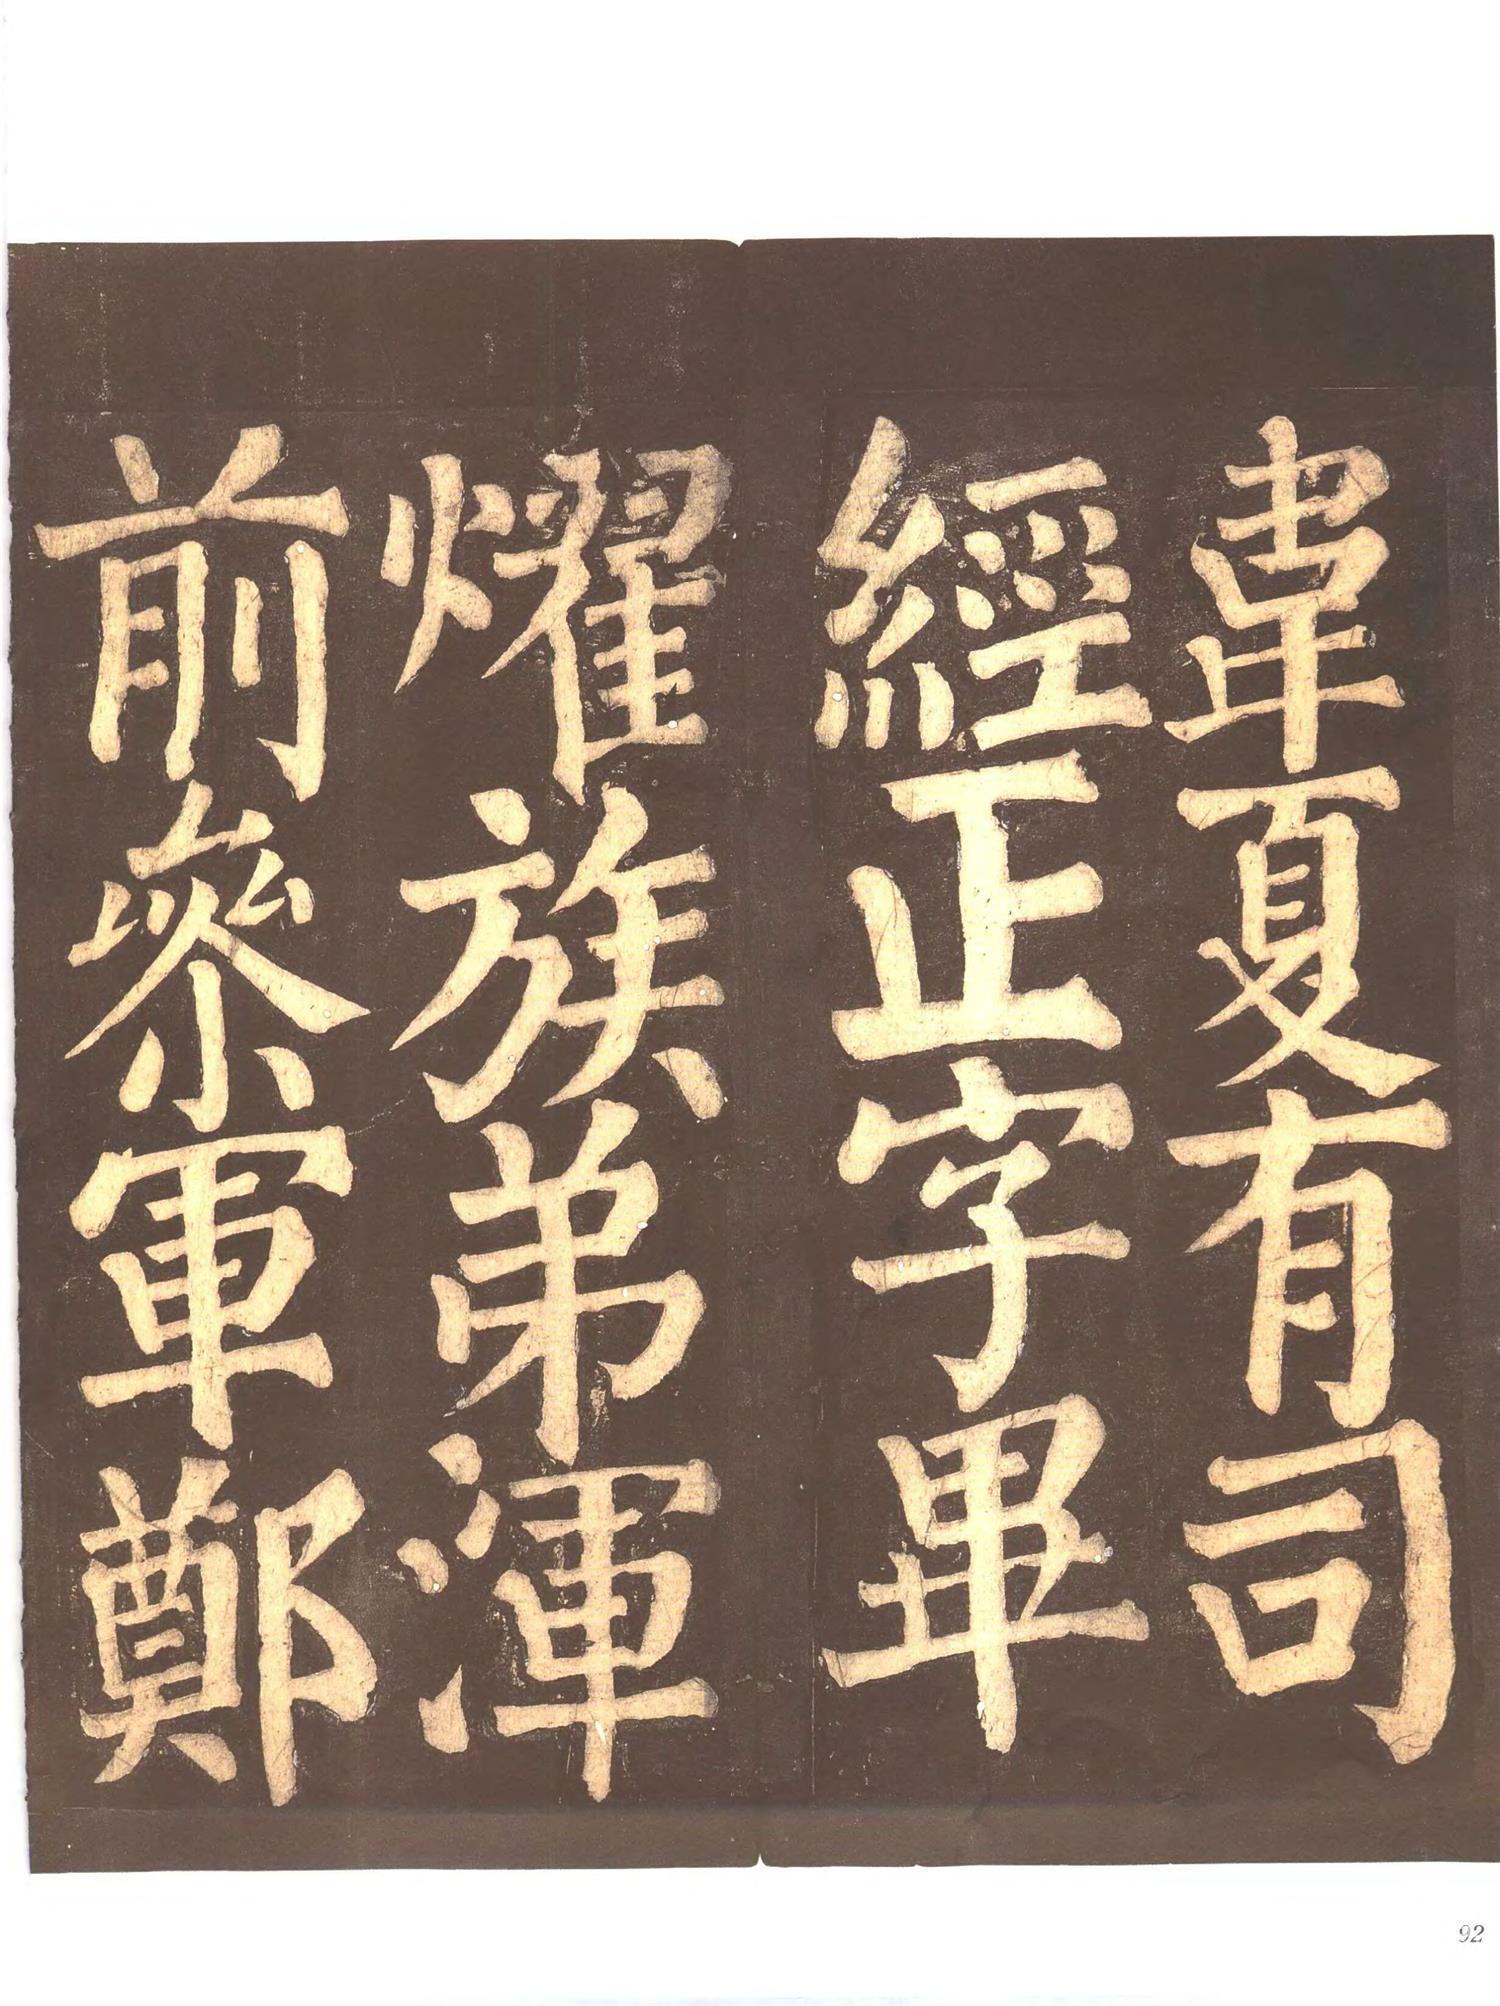 韋夏有司
經正字畢
燿族弟渾
前參軍鄭
92